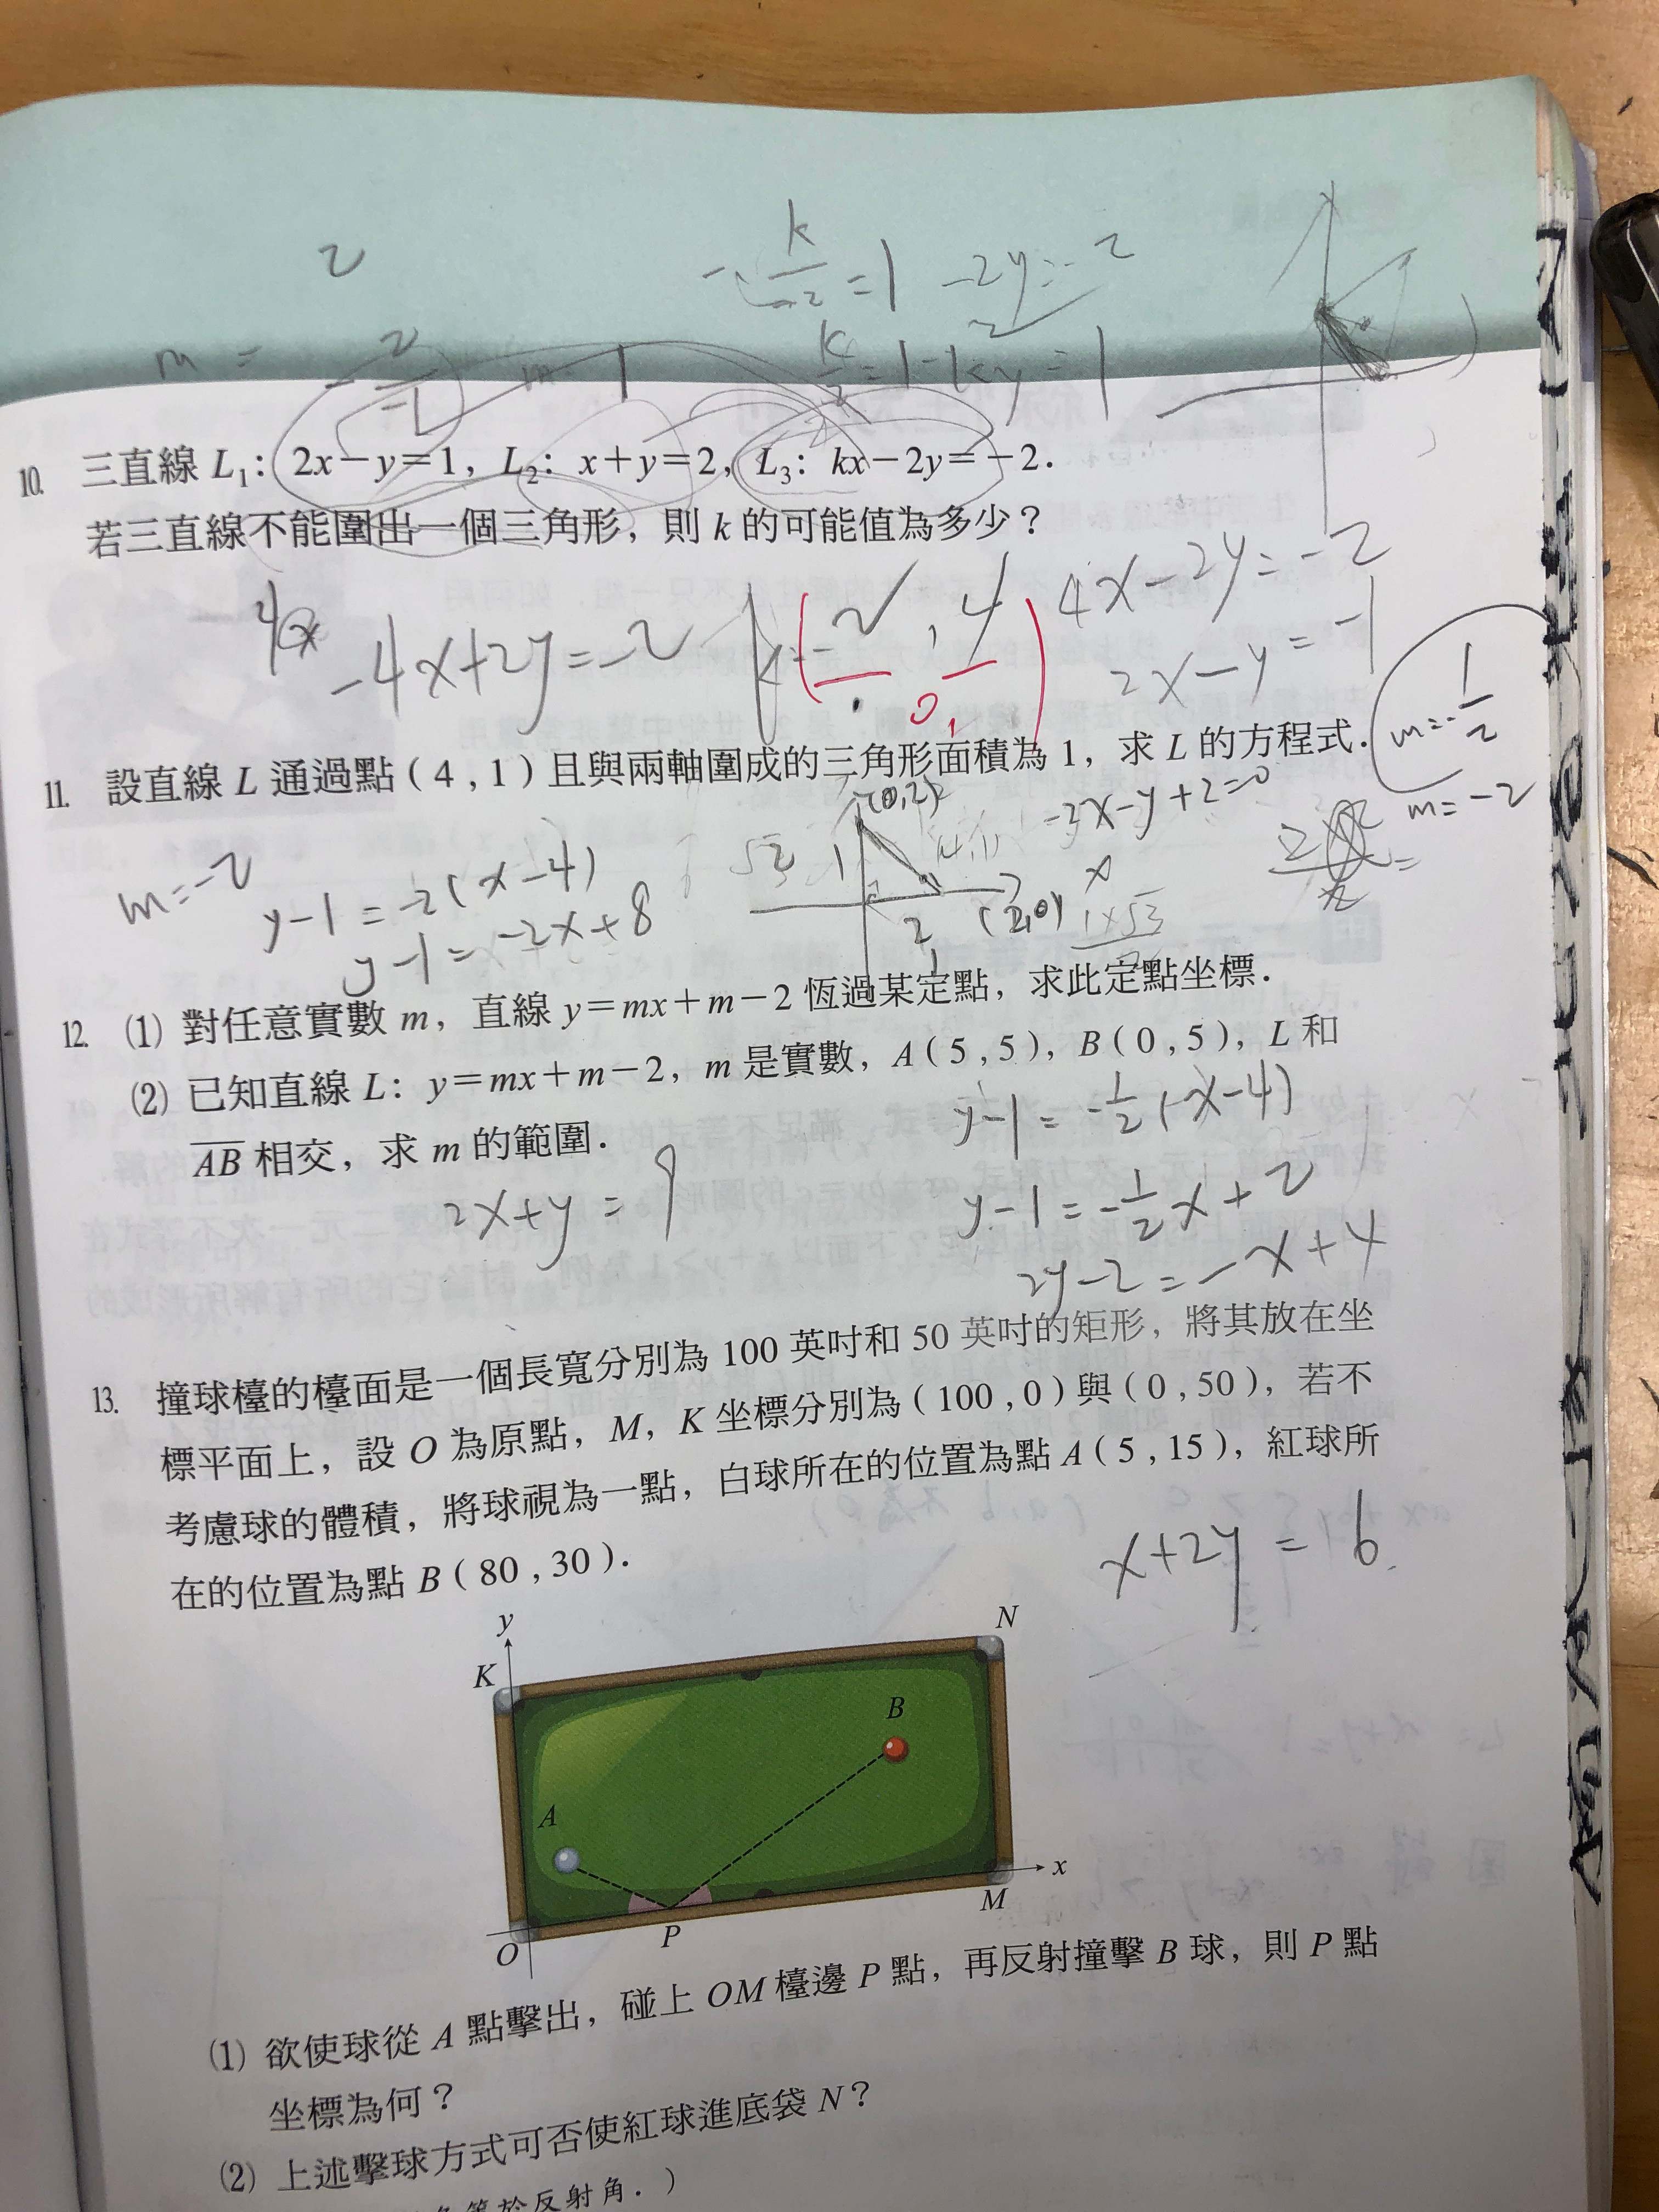 2
-k/-2=1
-2y=-2
m = -2/-1
m 1
k/2=1
-ky=1
10. 三直線 L₁： 2x－y＝1， L₂： x＋y＝2， L₃： kx－2y＝－2．
若三直線不能圍出一個三角形，則 k 的可能值為多少？
4x-2y=-2
-4x+2y=-2
k=-2,4
0,
2x-y=-1
11. 設直線 L 通過點（4 , 1）且與兩軸圍成的三角形面積為 1，求 L 的方程式．
m=-1/2
m=-2
(0,2)
-3x-y+2=0
m=-2
y-1=-2(x-4)
y-1=-2x+8
√3
1
2
(2,0)
1×√3
12. (1) 對任意實數 m，直線 y＝mx＋m－2 恆過某定點，求此定點坐標．
(2) 已知直線 L： y＝mx＋m－2，m 是實數，A（5 , 5），B（0 , 5），L 和
AB 相交，求 m 的範圍．
y-1=-1/2(x-4)
2x+y=9
y-1=-1/2x+2
2y-2=-x+4
13. 撞球檯的檯面是一個長寬分別為 100 英吋和 50 英吋的矩形，將其放在坐
標平面上，設 O 為原點，M，K 坐標分別為（100 , 0）與（0 , 50），若不
考慮球的體積，將球視為一點，白球所在的位置為點 A（5 , 15），紅球所
在的位置為點 B（80 , 30）．
x+2y=6
y
N
K
B
A
x
M
O
P
(1) 欲使球從 A 點擊出，碰上 OM 檯邊 P 點，再反射撞擊 B 球，則 P 點
坐標為何？
(2) 上述擊球方式可否使紅球進底袋 N？
等於反射角．）